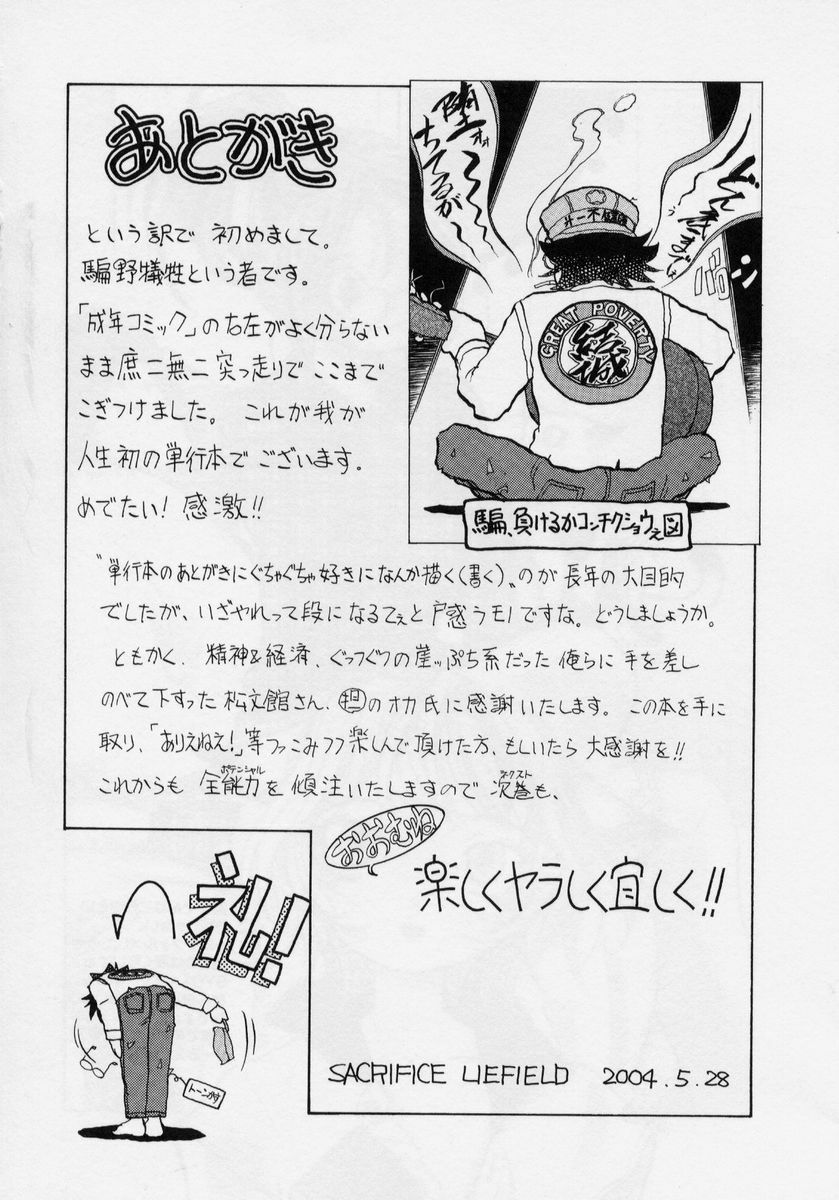 あとがき
という訳で 初めまして。
騙野犠牲という者です。
「成年コミック」の右左がよく分らない
まま庶二無二突っ走りで ここまで
こぎつけました。 これが我が
人生初の単行本で ございます。
めでたい! 感激!!
堕ちてるが
どん底まで
GREAT POVERTY
騙、負けるかコンチクショウぇ図
"単行本のあとがきにぐちゃぐちゃ好きになんか描く(書く)〟のが 長年の大目的
でしたが、いざやれって段になるてぇと戸惑うモノですな。どうしましょうか。
ともかく、精神&経済、ぐっつぐつの崖っぷち系だった 俺らに 手を差し
のべて下すった 松文館さん、担のオカ氏に感謝いたします。 この本を手に
取り、「ありえねえ!」等ツッこみつつ 楽しんで頂けた方、もしいたら 大感謝を!!
これからも 全能力ポテンシャルを 傾注いたしますので 次巻ネクストも、
おおむね
楽しくヤラしく宜しく!!
礼!!
トーンカス
SACRIFICE LIEFIELD 2004.5.28